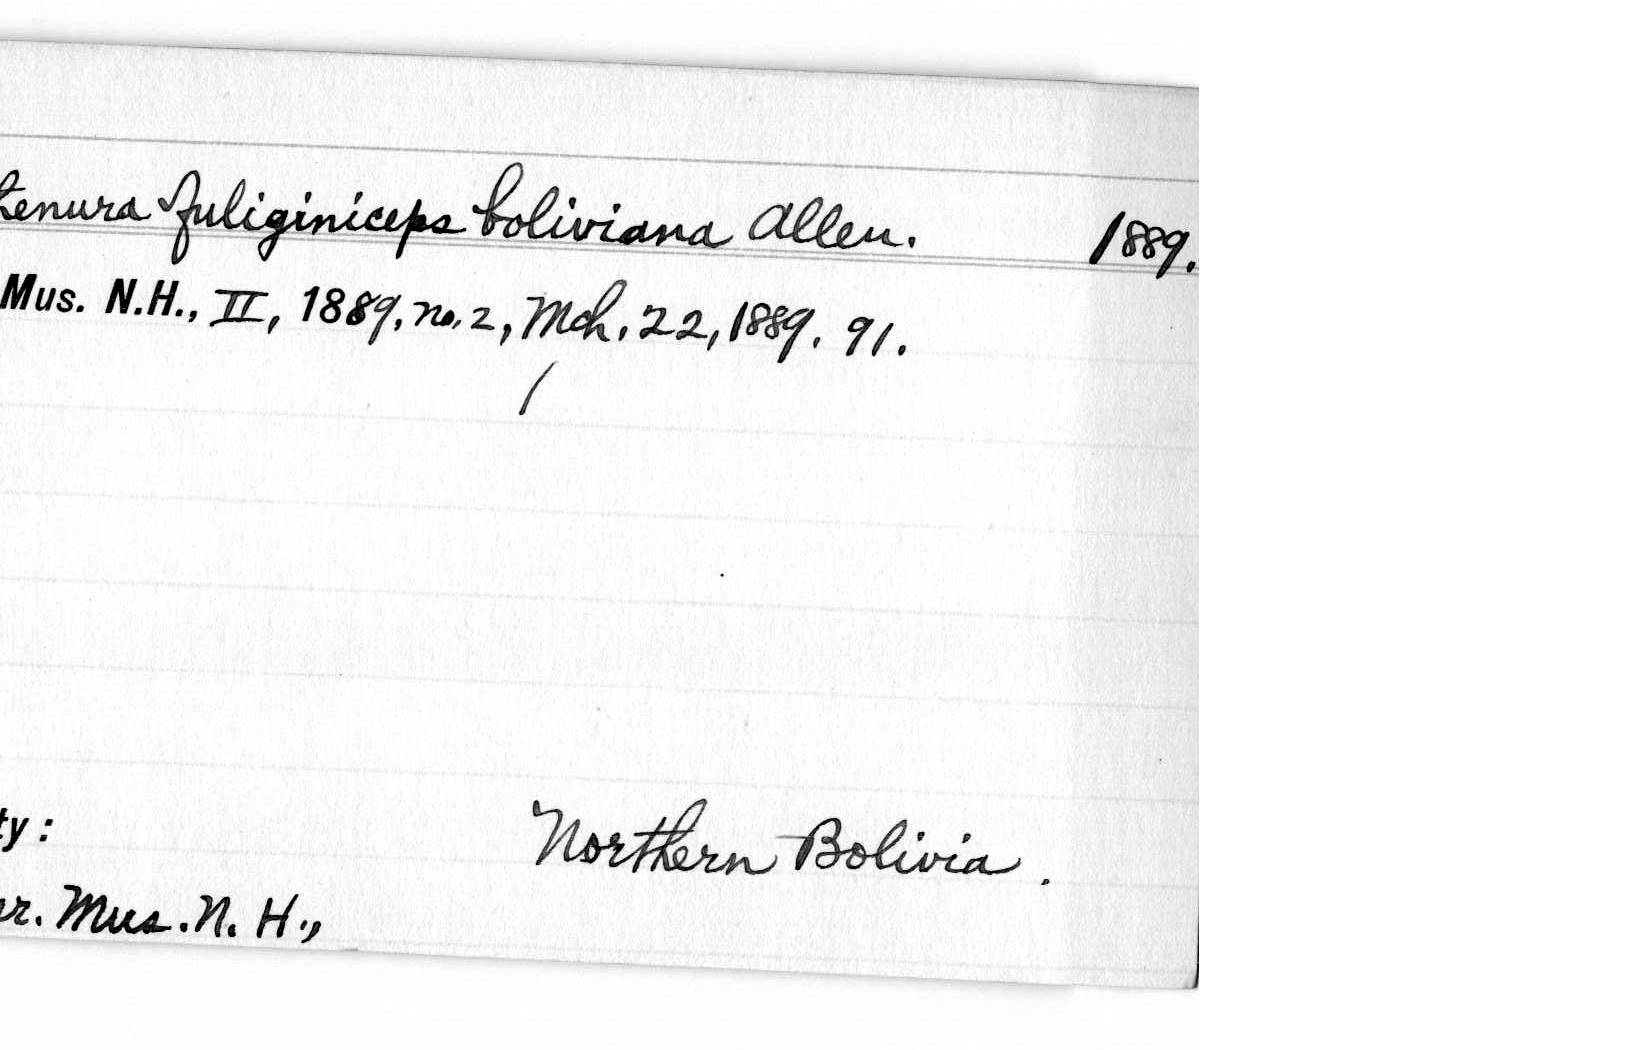 tenura fuliginiceps boliviana Allen. 1889.
Mus. N.H., II, 1889, no. 2, Mch. 22, 1889. 91.
/
ty: Northern Bolivia.
r. Mus. N. H.,